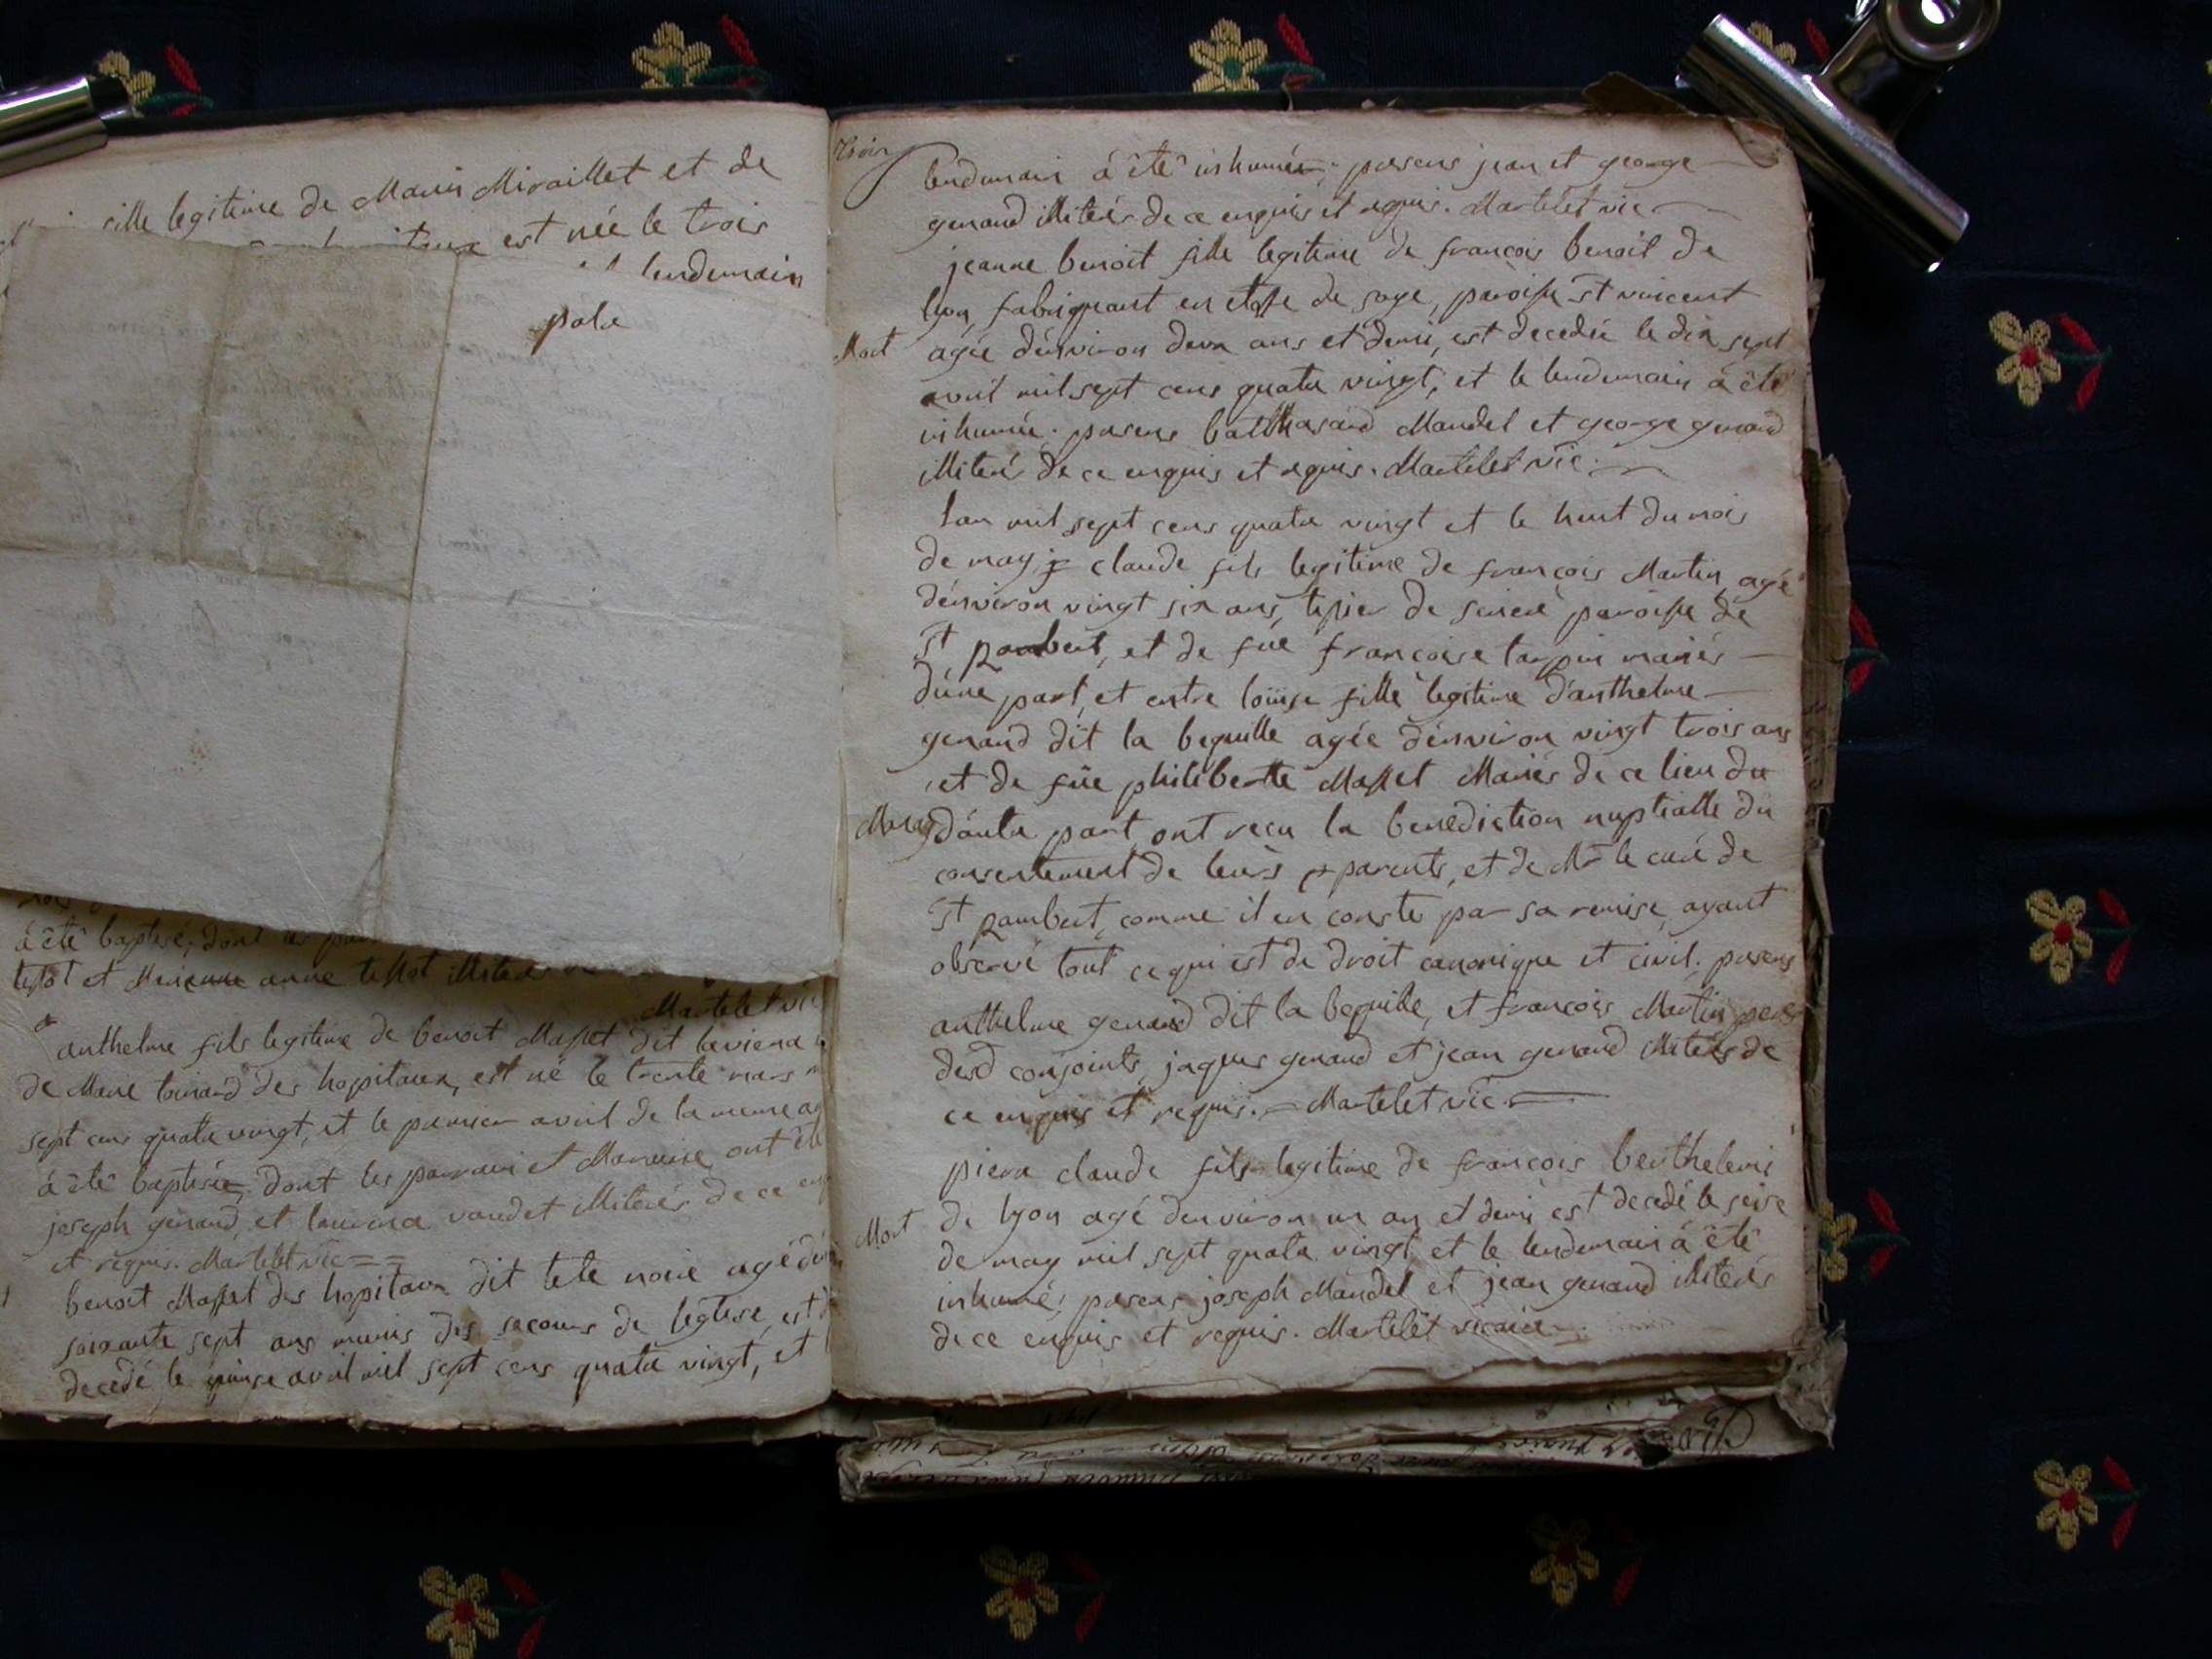 fille legitime de Marin Miraillet et de
est née le trois
lendemain
pala
à êté baptisé; dont les
testot et anne testot illiterés
Martelet vic
anthelme fils legitime de benoit Masset dit laviena
de Marie toinard des hopitaux, est né le trente mars
sept cens quatre vingt, et le premier avril de la meme
à êté baptisée, dont les parrain et Maraine ont êté
joseph genand, et vaudet illiterés de ce
et requis. Martelet vic
benoit Masset des hopitaux dit tete noire agé
soixante sept ans munis des secours de leglise, est
decedé le quinse avril mil sept cens quatre vingt, et
lendemain à êté inhumée; presens jean et george
genand illiterés de ce enquis et requis. Martelet vic
jeanne benoit fille legitime de francois benoit de
lyon, fabriquant en etoffe de soye, paroisse St vincent
Mort agée dénviron deux ans et demi, est decedée le dix sept
avril mil sept cens quatre vingt, et le lendemain à êté
inhumée. presens balthasard Mandel et george genand
illiterés de ce enquis et requis. Martelet vic.
lan mil sept cens quatre vingt et le huit du mois
de may, claude fils legitime de françois Martin, agé
dénviron vingt six ans, de paroisse de
St Rambert, et de füe françoise tarpin mariés
dúne part, et entre loüise fille legitime d'anthelme
genand dit la bequille agée dénviron vingt trois ans
et de füe philiberte Masset Mariés de ce lieu du
Mariag dáutre part, ont reçu la benediction nuptialle du
consentement de leurs parents, et de Mr le curé de
St Rambert, comme il en conste par sa remise, ayant
observé tout ce qui est de droit canonique et civil. presens
anthelme genand dit la bequille, et françois Martin peres
desd conjoints, jaques genand et jean genand illiterés de
ce enquis et requis. Martelet vic.
piere claude fils legitime de françois
Mort de lyon agé denviron un an et demi est decedé le seise
de may mil sept quatre vingt et le lendemain à êté
inhumé; presens joseph Mandel et jean genand illiterés
de ce enquis et requis. Martelet vicaire